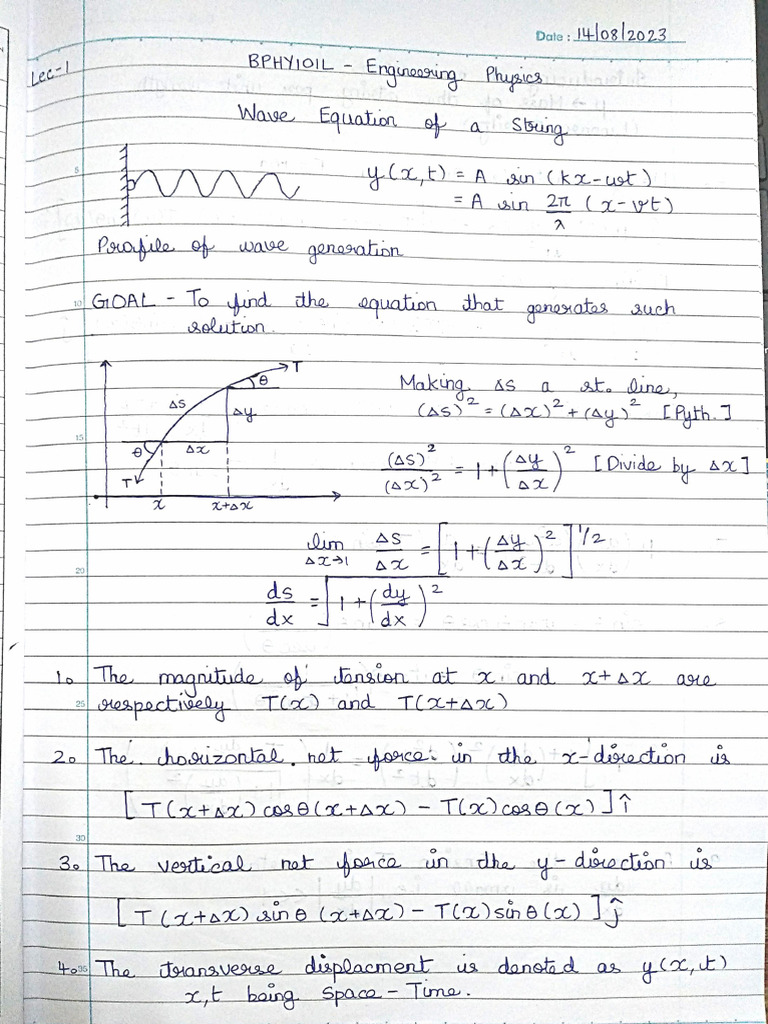 Date: 14/08/2023
Lec-1
BPHY101L - Engineering Physics
Wave Equation of a String
5
y(x,t) = A sin (kx-ωt)
= A sin 2π/λ (x-vt)
Profile of wave generation
10
GOAL - To find the equation that generates such
solution.
T
θ
Δs
Δy
θ
Δx
T
x
x+Δx
Making Δs a st. line,
(Δs)² = (Δx)² + (Δy)² [Pyth.]
15
(Δs)²/(Δx)² = 1+(Δy/Δx)² [Divide by Δx]
lim Δx→1 Δs/Δx = [1+(Δy/Δx)²]^1/2
20
ds/dx = √1+(dy/dx)²
1. The magnitude of tension at x and x+Δx are
25
respectively T(x) and T(x+Δx)
2. The horizontal net force in the x-direction is
[T(x+Δx) cosθ(x+Δx) - T(x)cosθ(x)] î
30
3. The vertical net force in the y-direction is
[T(x+Δx) sinθ (x+Δx) - T(x) sinθ(x)] ĵ
35
4. The transverse displacment is denoted as y(x,t)
x,t being space-Time.